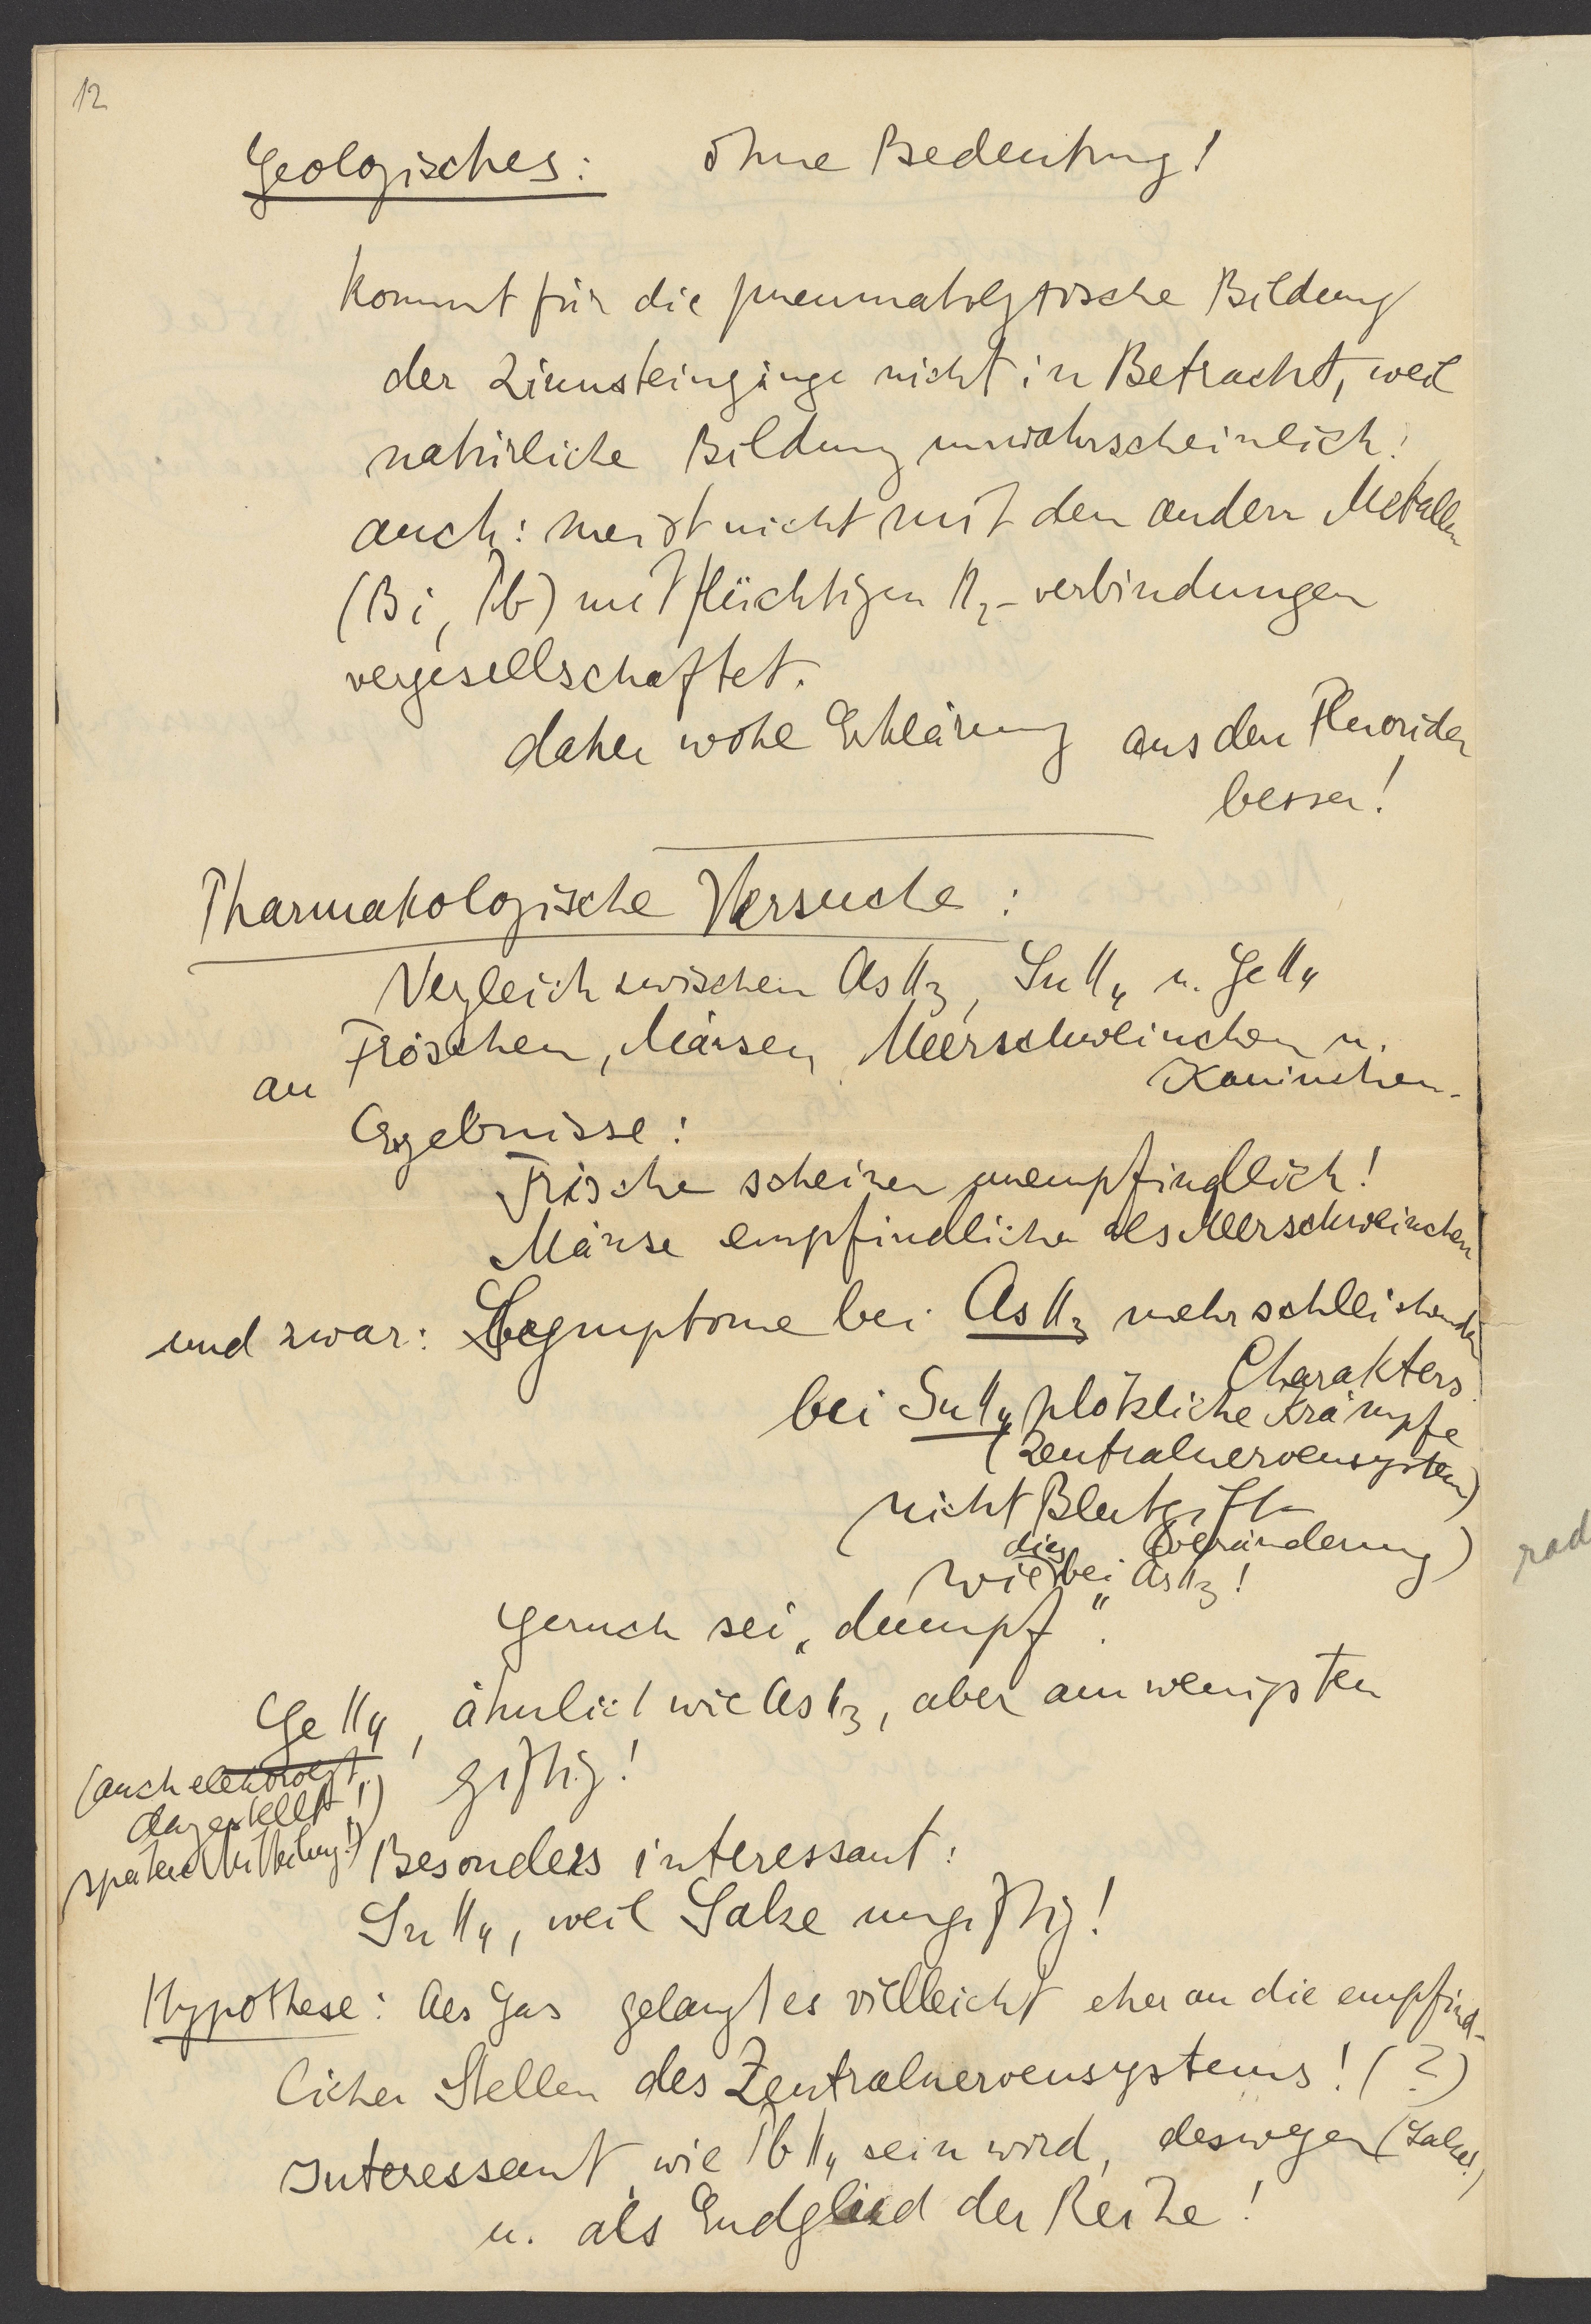 12
Geologisches: ohne Bedeutung!
kommt für die pneumatolytische Bildung
der Zinnsteingänge nicht in Betracht, weil
natürliche Bildung unwahrscheinlich!
auch: meist nicht mit den andern Metallen
(Bi, Pb) mit flüchtigen H2-verbindungen
vergesellschaftet.
daher wohl Erklärung aus den Fluoriden
besser!
Pharmakologische Versuche:
Vergleich zwischen AsH3, SnH4 u. GeH4
an Fröschen, Mäusen, Meerschweinchen u.
Kaninchen.
Ergebnisse:
Frösche scheinen unempfindlich!
Mäuse empfindlicher als Meerschweinchen
und zwar: Symptome bei AsH3 mehr schleichenden
Charakters.
bei SnH4 plötzliche Krämpfe
(Zentralnervensystem)
(nicht Blutgift
veränderung)
wie dies bei AsH3!
Geruch sei „dumpf".
GeH4, ähnlich wie AsH3, aber am wenigsten
giftig!
(auch elektrolyt.
dargestellt!)
spätere Mitteilung!)
Besonders interessant:
SnH4, weil Salze ungiftig!
Hypothese: Als Gas gelangt es vielleicht eher an die empfind-
lichen Stellen des Zentralnervensystems! (?)
Interessant, wie PbH4 sein wird, deswegen (Salze!)
u. als Endglied der Reihe!
rad